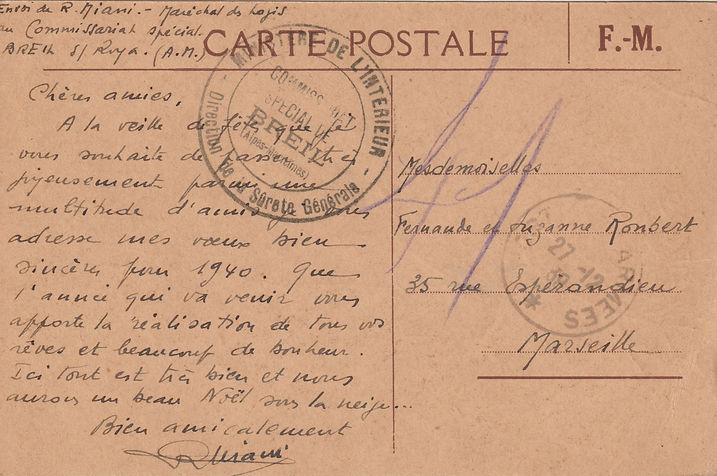 Envoi de R. Miani. - Maréchal des logis
au Commissariat spécial.
BREIL s/ Roya. (A.M.)
CARTE POSTALE
F.-M.
MINISTÈRE DE L'INTERIEUR
Direction de la Sûreté Générale
COMMISSARIAT
SPECIAL DE
BREIL
(Alpes-Maritimes)
Chères amies,
A la veille de fêtes que je
vous souhaite de passer très
joyeusement parmi une
multitude d'amis je vous
adresse mes vœux bien
sincères pour 1940. Que
l'année qui va venir vous
apporte la réalisation de tous vos
rêves et beaucoup de bonheur.
Ici tout est très bien et nous
aurons un beau Noël sous la neige...
Bien amicalement
RMiani
Mesdemoiselles
Fernande et Suzanne Ronbert
35 rue Esperandieu
Marseille
27-12
ARMEES